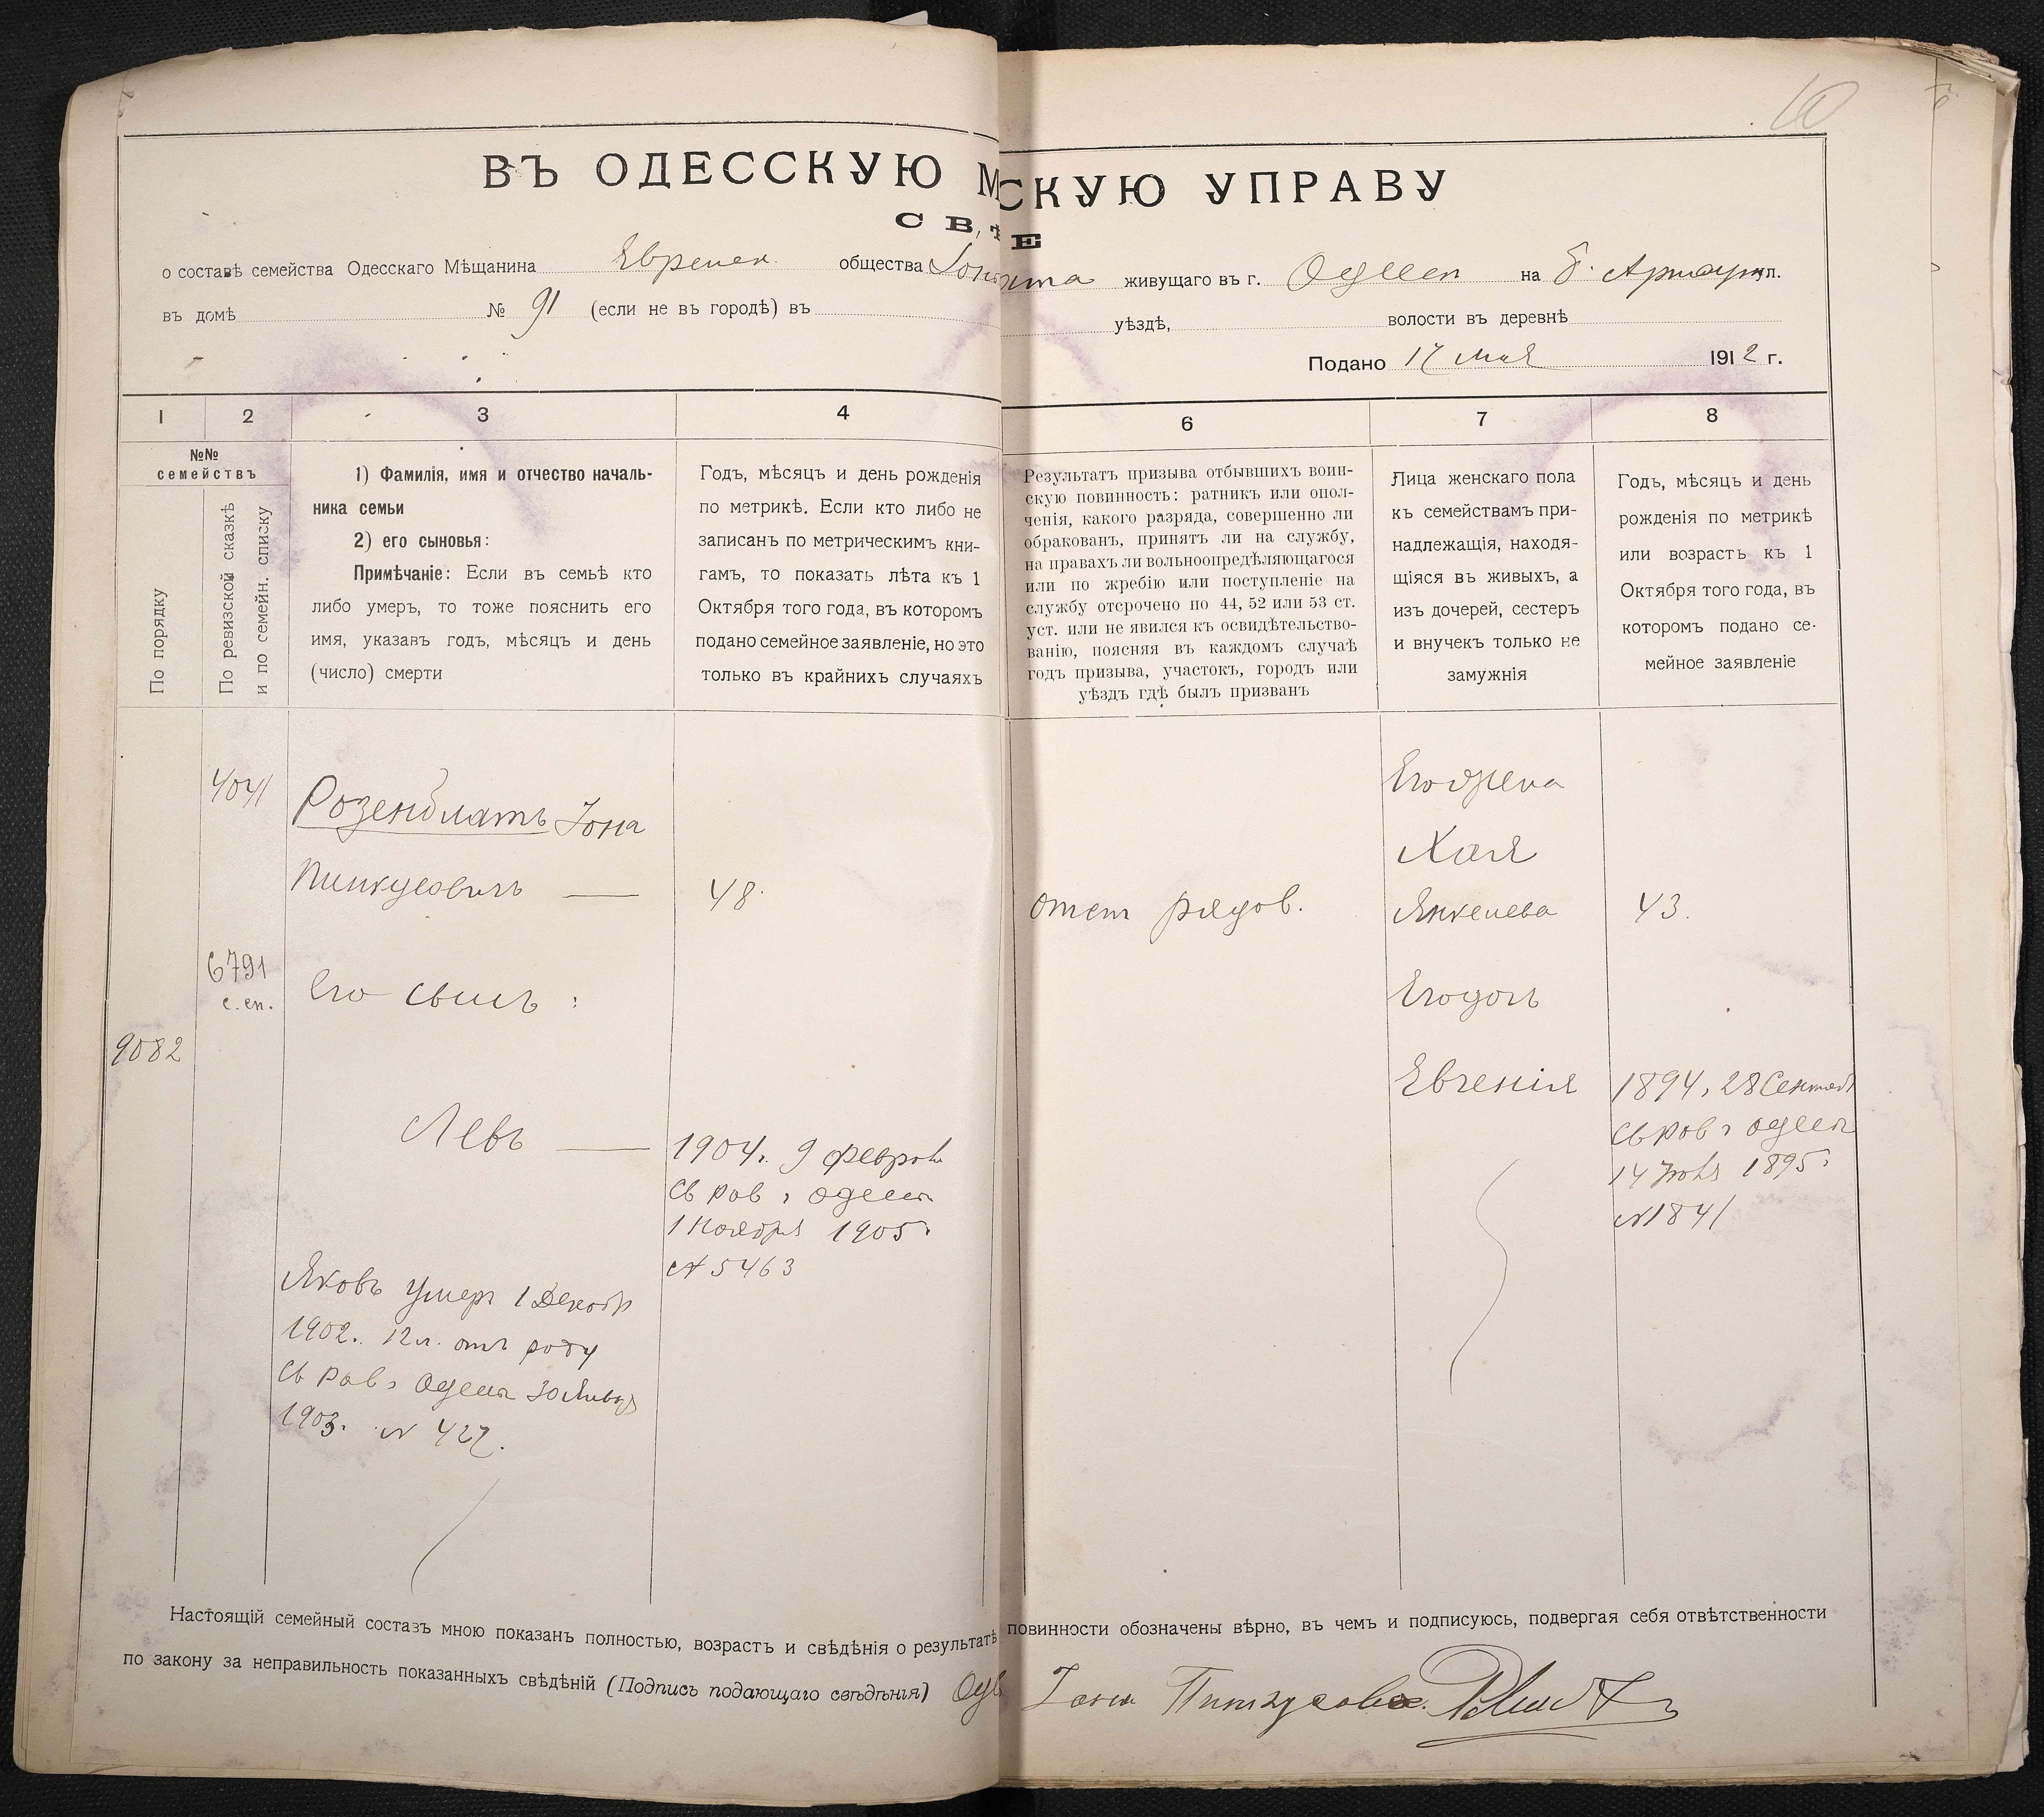 10
ВЪ ОДЕССКУЮ М
СКУЮ УПРАВУ
СВѢ
Е
о составѣ семейства Одесскаго Мѣщанина Евреиск. общества
живущаго въ г. Одессѣ на Б. Арнаут ул.
въ домѣ № 91 (если не въ городѣ) въ
уѣздѣ, волости въ деревнѣ
Подано 17 Мая 1912 г.
1 2 3 4
6 7 8
№№
семействъ
По порядку
По ревизской сказкѣ
и по семейн. списку
1) Фамилія, имя и отчество началь-
ника семьи
2) его сыновья:
Примѣчаніе: Если въ семьѣ кто
либо умеръ, то тоже пояснить его
имя, указавъ годъ, мѣсяцъ и день
(число) смерти
Годъ, мѣсяцъ и день рожденія
по метрикѣ. Если кто либо не
записанъ по метрическимъ кни-
гамъ, то показать лѣта къ 1
Октября того года, въ которомъ
подано семейное заявленіе, но это
только въ крайнихъ случаяхъ
Результатъ призыва отбывшихъ воин-
скую повинность: ратникъ или опол-
ченія, какого разряда, совершенно ли
обракованъ, принятъ ли на службу,
на правахъ ли вольноопредѣляющагося
или по жребію или поступленіе на
службу отсрочено по 44, 52 или 53 ст.
уст. или не явился къ освидѣтельство-
ванію, поясняя въ каждомъ случаѣ
годъ призыва, участокъ, городъ или
уѣздъ гдѣ былъ призванъ
Лица женскаго пола
къ семействамъ при-
надлежащія, находя-
щіяся въ живыхъ, а
изъ дочерей, сестеръ
и внучекъ только не
замужнія
Годъ, мѣсяцъ и день
рожденія по метрикѣ
или возрастъ къ 1
Октября того года, въ
которомъ подано се-
мейное заявленіе
4041
Розенблатъ Іона
Пинкусовичъ — 48.
6791
с. сп.
Его сынъ:
9082
Левъ —
1904 г. 9 Феврал
Св Рав г Одессы
1 Ноября 1905 г
№ 5463
Яковъ умеръ 1 Декабр
1902. 12 л. отъ роду
Св Рав г Одессы 30 Январ
1903. № 427.
отст рядов.
Его жена
Хая
Янкелева 43.
Его дочь
Евгенія
1894, 28 Сентяб
Св Рав г Одессы
14 Іюля 1895 г
№ 1841
Настоящій семейный составъ мною показанъ полностью, возрастъ и свѣдѣнія о результатѣ
повинности обозначены вѣрно, въ чемъ и подписуюсь, подвергая себя отвѣтственности
по закону за неправильность показанныхъ свѣдѣній (Подпись подающаго свѣдѣнія)
Іона Пинкусов.